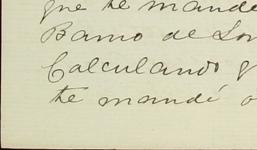 que te mandé
Banco de Lon
Calculando q
te mandé